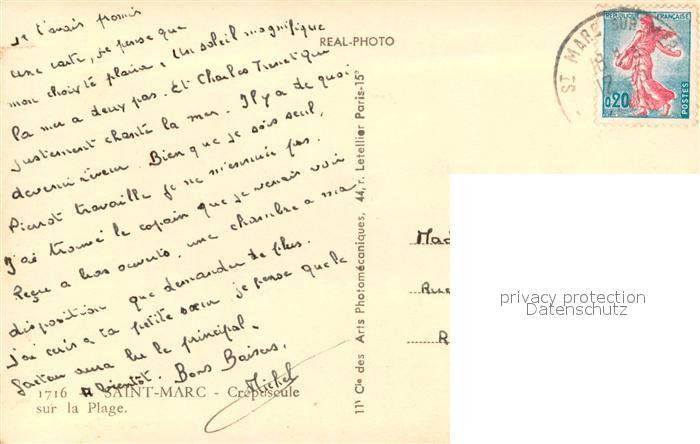 Je t'avais promis
une carte, je pense que
mon choix te plaira. Un soleil magnifique
la mer a deux pas. Et Charles Trenet qui
justement chante la mer. Il y a de quoi
devenir rêveur. Bien que je sois seul,
Pierrot travaille je ne m'ennuie pas.
J'ai trouvé le copain que je venais voir
Reçu a bras ouverts, une chambre a ma
disposition que demander de plus.
J'ai écris a ta petite sœur je pense que le
facteur aura lu le principal.
a bientôt. Bons Baisers,
Michel
1716 SAINT-MARC - Crépuscule
sur la Plage.
REAL-PHOTO
11, Cie des Arts Photomécaniques, 44, r. Letellier Paris-15e
ST MARC SUR MER
17
RÉPUBLIQUE FRANÇAISE
0,20
POSTES
Mad
Rue
R
privacy protection
Datenschutz